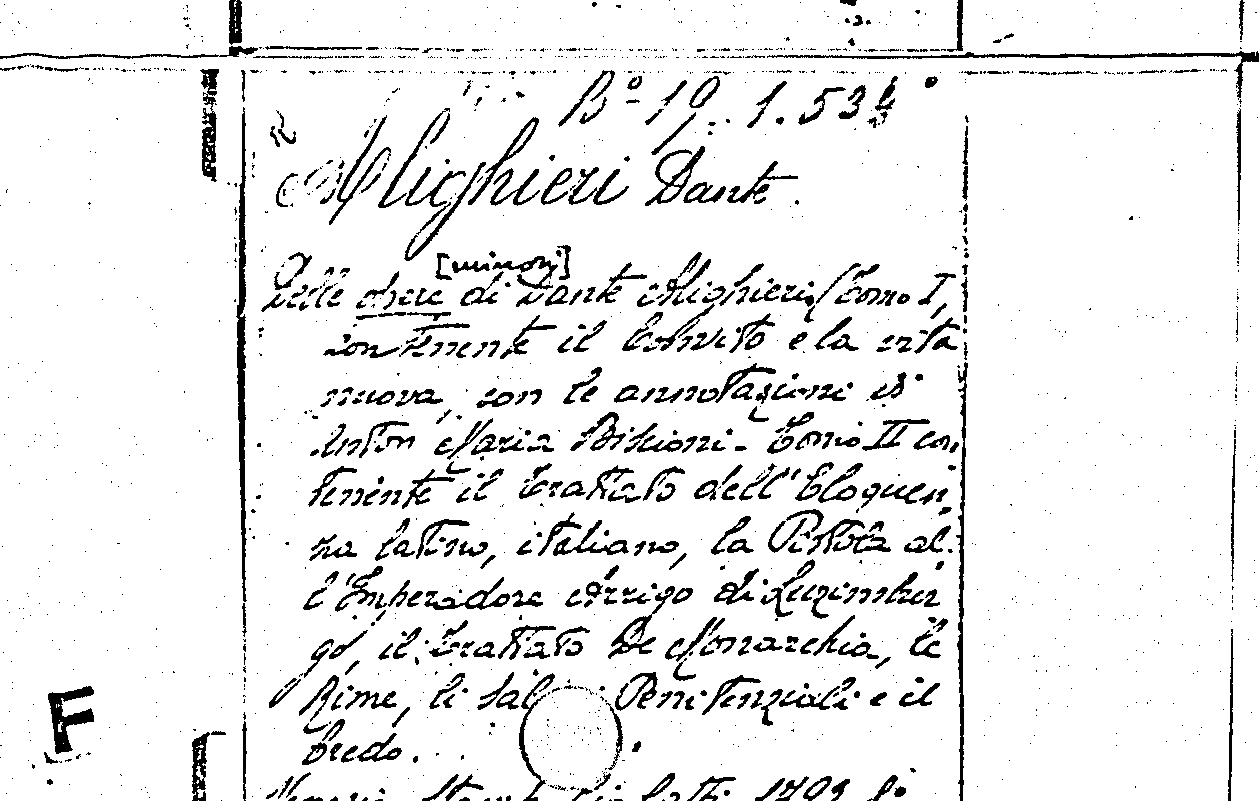 Bº 19. 1. 53
Alighieri Dante.
[minori]
Delle opere di Dante Alighieri (Tomo I,
contenente il Convito e la vita
nuova, con le annotazioni di
Anton Maria Biscioni. Tomo II con
tenente il Trattato dell'Eloquen
za latino, italiano, la Pistola al
l'Emperadore Arrigo di Luzimbur
go, il Trattato De Monarchia, le
Rime, li Sal Penitenziali e il
Credo.
1793 8º
F